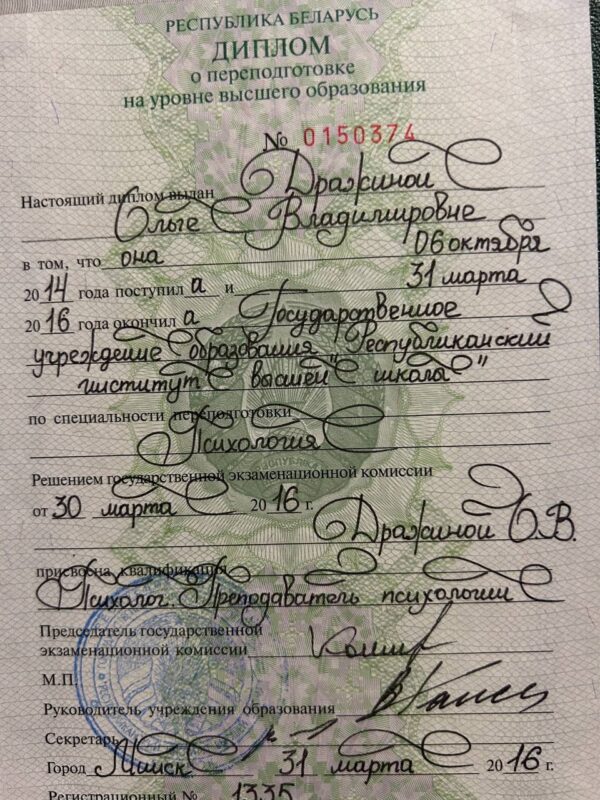 РЕСПУБЛИКА БЕЛАРУСЬ
ДИПЛОМ
о переподготовке
на уровне высшего образования
№ 0150374
Настоящий диплом выдан Дражиной
Ольге Владимировне
в том, что она 06 октября
2014 года поступил а и 31 марта
2016 года окончил а Государственное
учреждение образования "Республиканский
институт высшей школы"
по специальности переподготовки
Психология
Решением государственной экзаменационной комиссии
от 30 марта 2016 г.
Дражиной О.В.
присвоена квалификация
Психолог. Преподаватель психологии
Председатель государственной
экзаменационной комиссии
М.П.
Руководитель учреждения образования
Секретарь
Город Минск 31 марта 2016 г.
Регистрационный № 1335